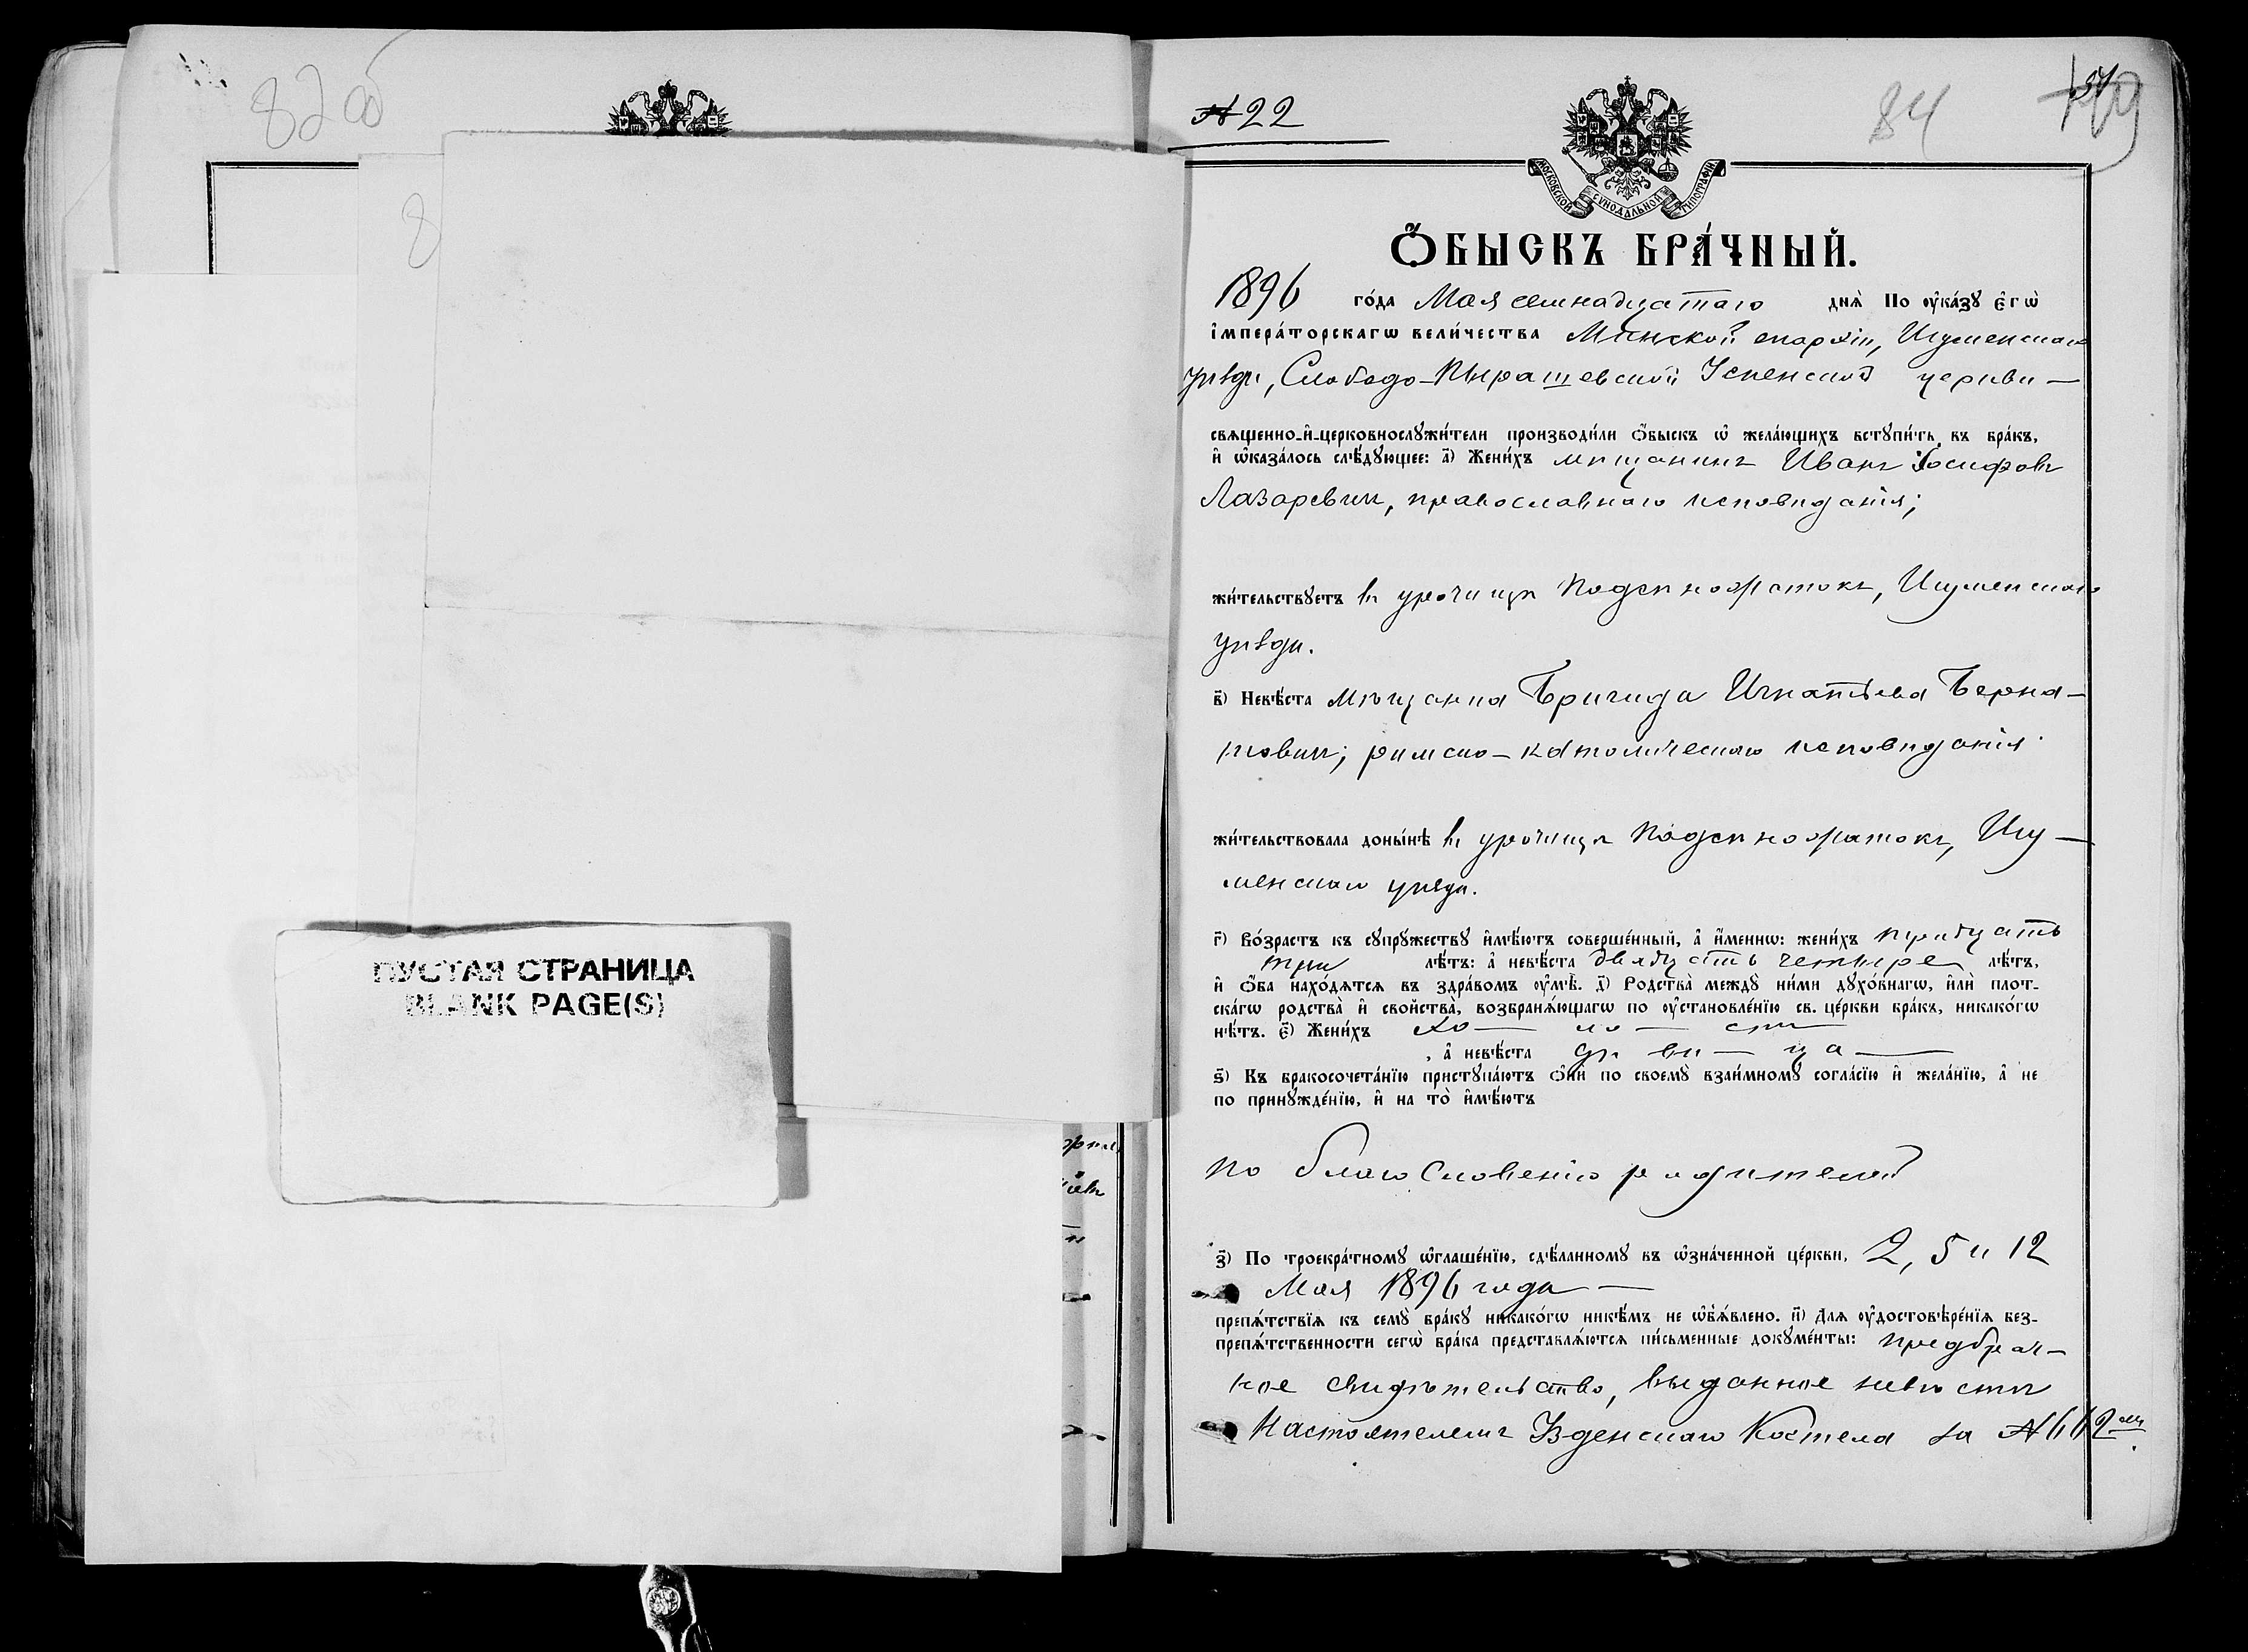 82 об
8
ПУСТАЯ СТРАНИЦА
BLANK PAGE(S)
№ 22
84
МОСКОВСКОЙ СУНОДАЛЬНОЙ ТИПОГРАФІИ
Ѻ҆БЫСКЪ БРА́ЧНЫЙ.
1896 го́да Мая семнадцатаго днѧ̀ По ᲂу҆ка́зꙋ є҆гѡ̀
і҆мпера́торскагѡ вели́чества Минской епархіи, Игуменскаго
уѣзда, Слободо-Пырашевской Успенской церкви —
свѧщенно-и҆-церковнослꙋжи́тели производи́ли ѻ҆́быскъ ѡ҆ жела́ющихъ встꙋпи́ть въ бра́къ,
и҆ ѡ҆каза́лось слѣ́дꙋющее: а҃) Жени́хъ мѣщанинъ Иванъ Іосифовъ
Лазаревичъ, православнаго исповѣданія;
жи́тельствꙋетъ въ урочищѣ Игуменскаго
уѣзда.
в҃) Невѣ́ста мѣщанка Бригида Игнатьева Берна-
товичъ; римско-католическаго исповѣданія
жи́тельствовала доны́нѣ въ урочищѣ Игу-
менскаго уѣзда.
г҃) Во́зрастъ къ сꙋпрꙋ́жествꙋ и҆мѣ́ютъ соверше́нный, а҆ и҆́меннѡ: жени́хъ тридцать
три лѣ́тъ: а҆ невѣ́ста двадцать четыре лѣ́тъ,
и҆ ѻ҆́ба нахо́дѧтсѧ въ здра́вомъ ᲂу҆мѣ̀. д҃) Родства̀ междꙋ̀ ни́ми дꙋхо́внагѡ, и҆лѝ плот-
ска́гѡ родства̀ и҆ свойства̀, возбранѧ́ющагѡ по ᲂу҆становле́нїю св. це́ркви бра́къ, никако́гѡ
нѣ́тъ. є҃) Жени́хъ хо — ло — стъ
, а҆ невѣ́ста дѣ ви — ца —
ѕ҃) Къ бракосочета́нїю пристꙋпа́ютъ ѻ҆нѝ по своемꙋ̀ взаи́мномꙋ согла́сїю и҆ жела́нїю, а҆ не
по принꙋжде́нїю, и҆ на то̀ и҆мѣ́ютъ
по благословенію родителей
з҃) По троекра́тномꙋ ѡ҆глаше́нїю, сдѣ́ланномꙋ въ ѡ҆зна́ченной це́ркви, 2, 5 и 12
Мая 1896 года —
препѧ́тствїѧ къ семꙋ̀ бра́кꙋ никако́гѡ никѣ́мъ не ѡ҆б̾ѧ́влено. и҃) Длѧ ᲂу҆достовѣре́нїѧ без-
препѧ́тственности сегѡ̀ бра́ка представлѧ́ютсѧ пи́сьменные докꙋме́нты: предбрач-
ное свидѣтельство, выданное невѣстѣ
Настоятелемъ Узденскаго Костела за № 662